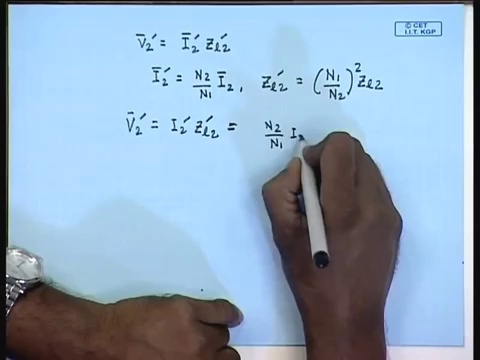 © CET
I.I.T. KGP
V̄₂′ = Ī₂′ Zℓ₂′
Ī₂′ = N₂/N₁ Ī₂, Zℓ₂′ = (N₁/N₂)² Zℓ₂
V̄₂′ = I₂′ Zℓ₂′ = N₂/N₁ I